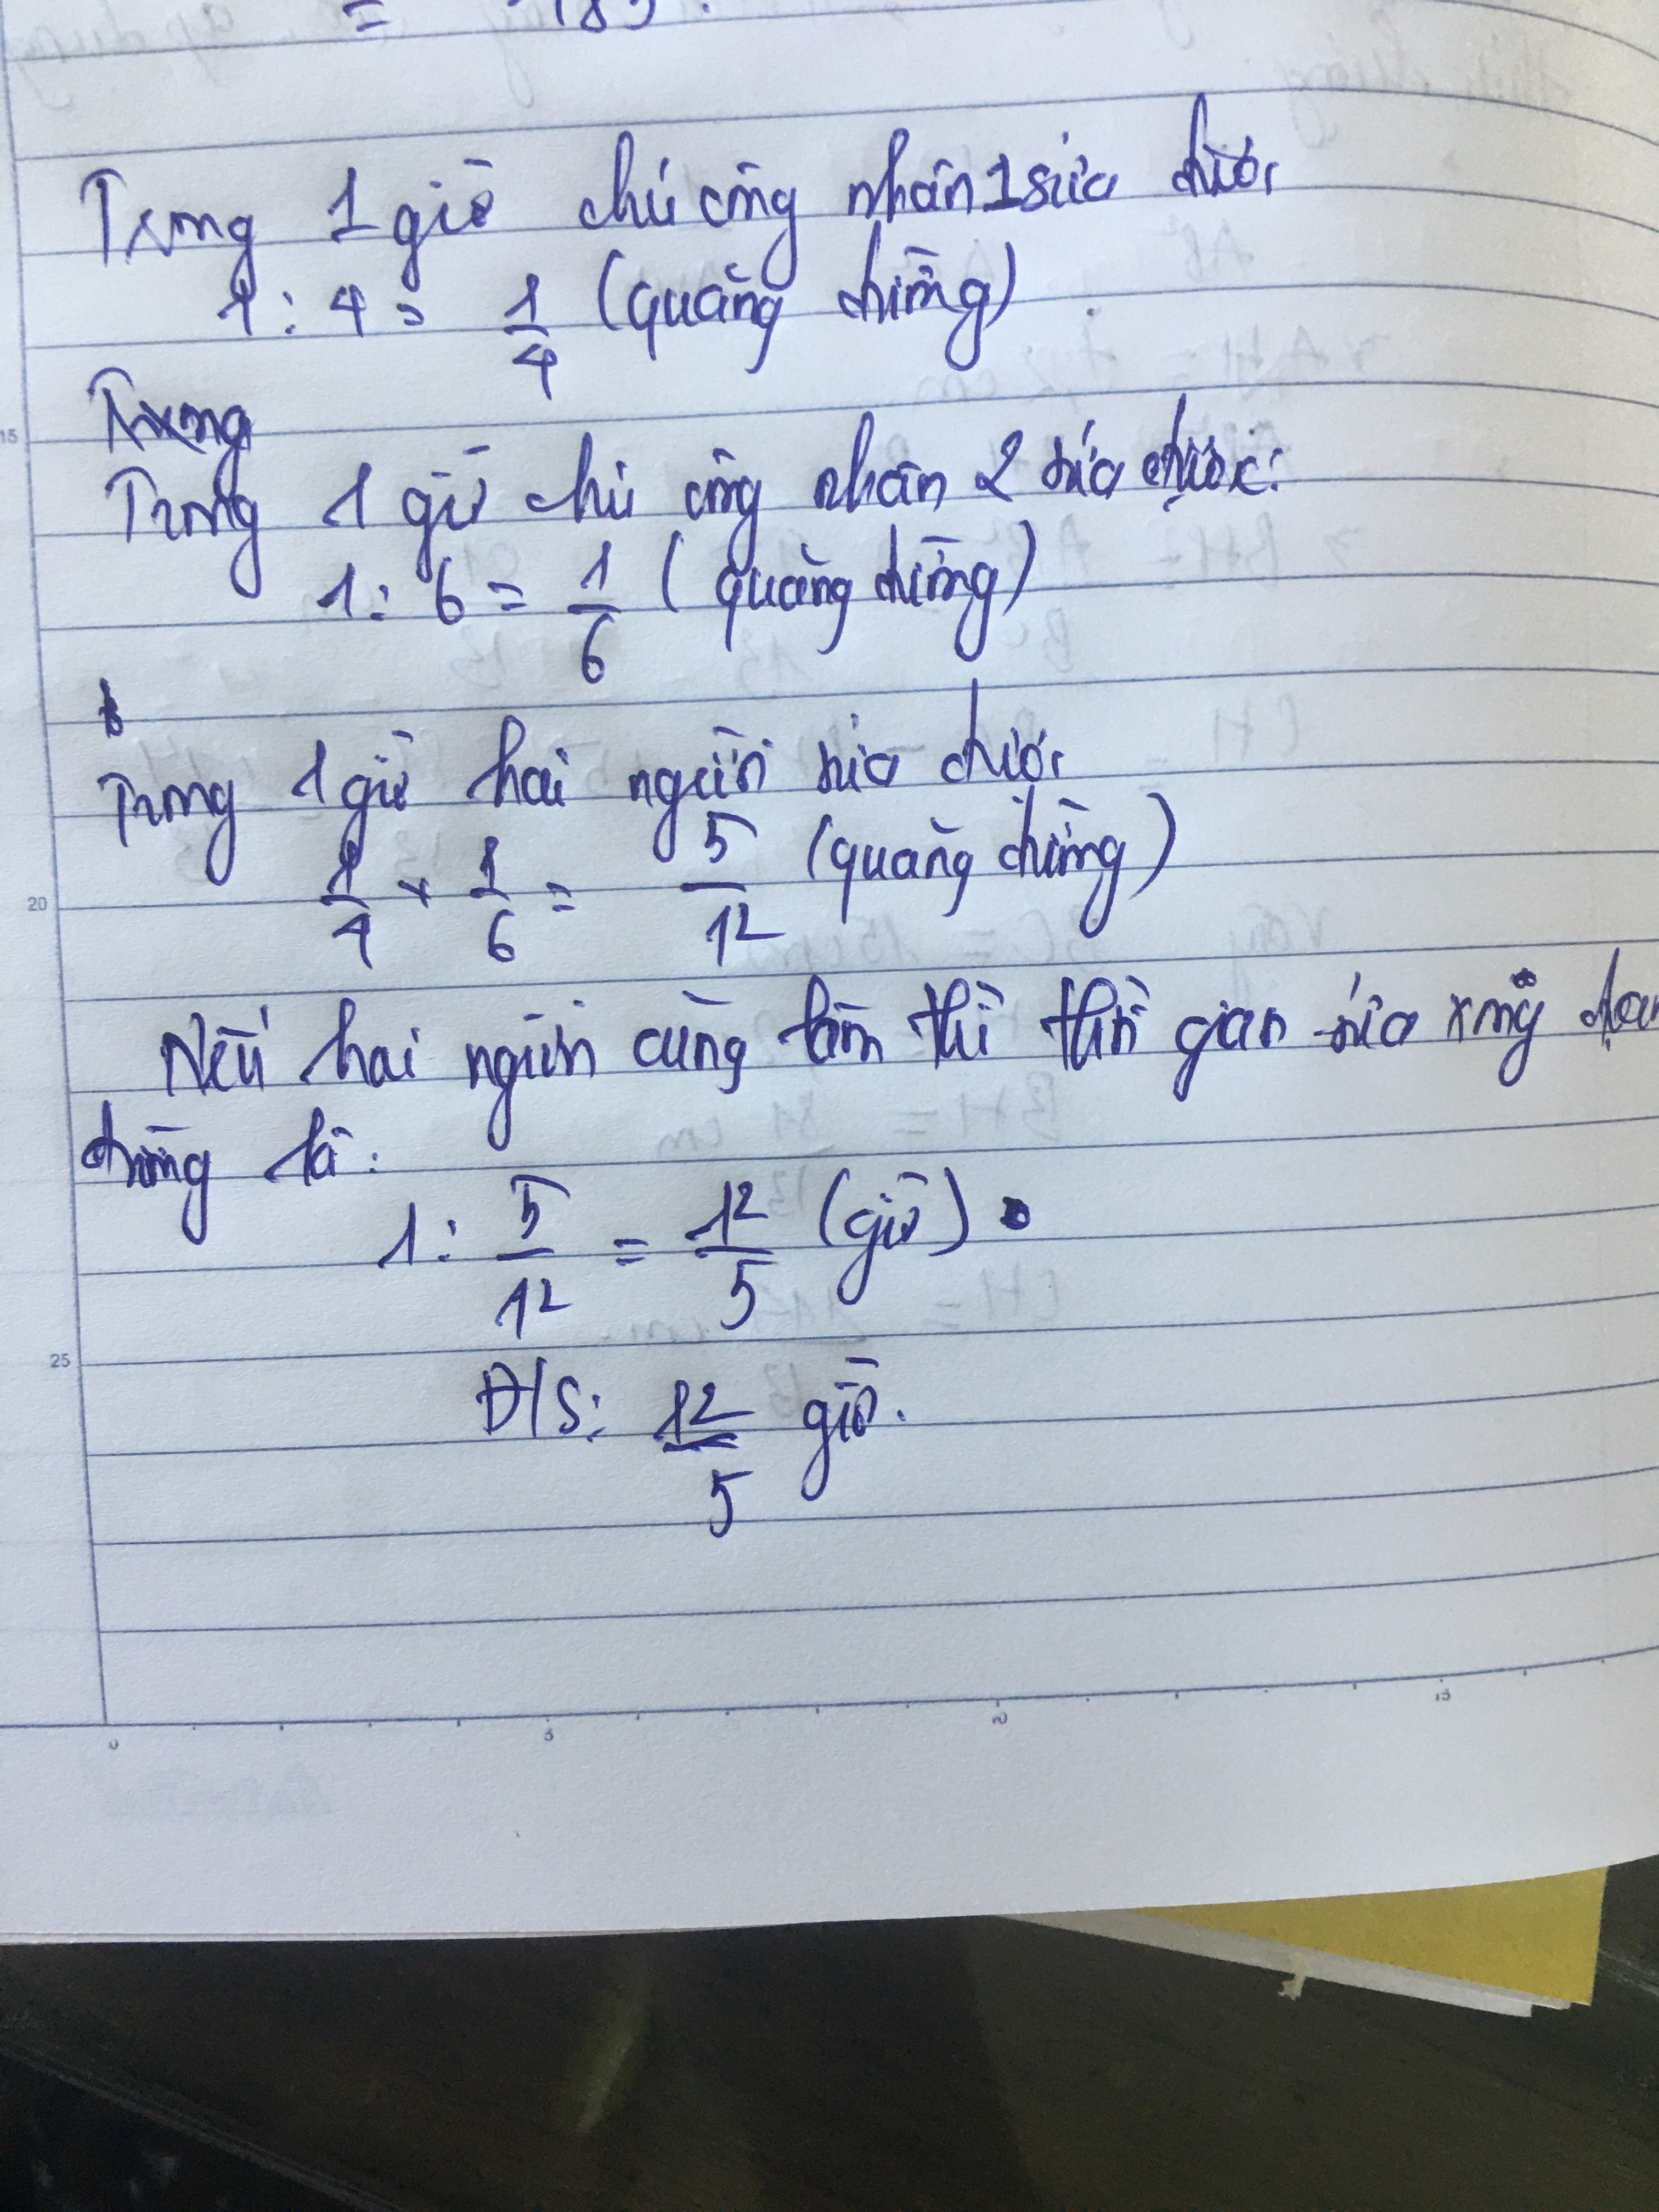 = 185.
Trong 1 giờ chú công nhân 1 sửa được
1 : 4 = 1/4 (quãng đường)
Trong
Trong 1 giờ chú công nhân 2 sửa được:
1 : 6 = 1/6 (quãng đường)
Trong 1 giờ hai người sửa được
1/4 + 1/6 = 5/12 (quãng đường)
Nếu hai người cùng làm thì thời gian sửa xong đoạn
đường là:
1 : 5/12 = 12/5 (giờ)
Đ/S: 12/5 giờ.
15
20
25
0 5 10 15